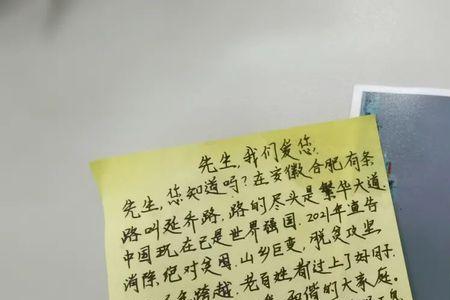 先生,我们爱您.
先生,您知道吗?在安徽合肥有条
路叫延乔路,路的尽头是繁华大道.
中国现在已是世界强国.2021年宣告
消除绝对贫困.山乡巨变,脱贫攻坚
跨越.老百姓都过上了好日子.
的大家庭.